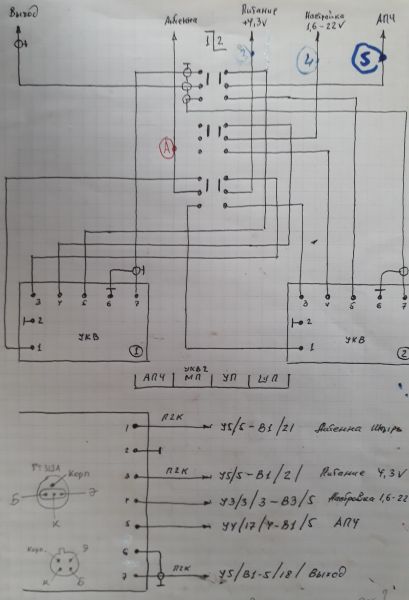 Выход
Антенна
Питание
+4,3V
Настройка
1,6-22V
АПЧ
1 2
2
4
5
А
3 4 5 6 7
2
1
УКВ
1
3 4 5 6 7
2
1
УКВ
2
УКВ2
АПЧ МП УП
1 П2К У5/5-В1/21 Антенна Штырь
2
3 П2К У5/5-В1/2/ Питание 4,3V
4 У3/3/3-В3/5 Настройка 1,6-22
5 У4/17/4-В1/5 АПЧ
6
7 П2К У5/В1-5/18/ Выход
Корп
Б Э
К
Корп. Э
К Б